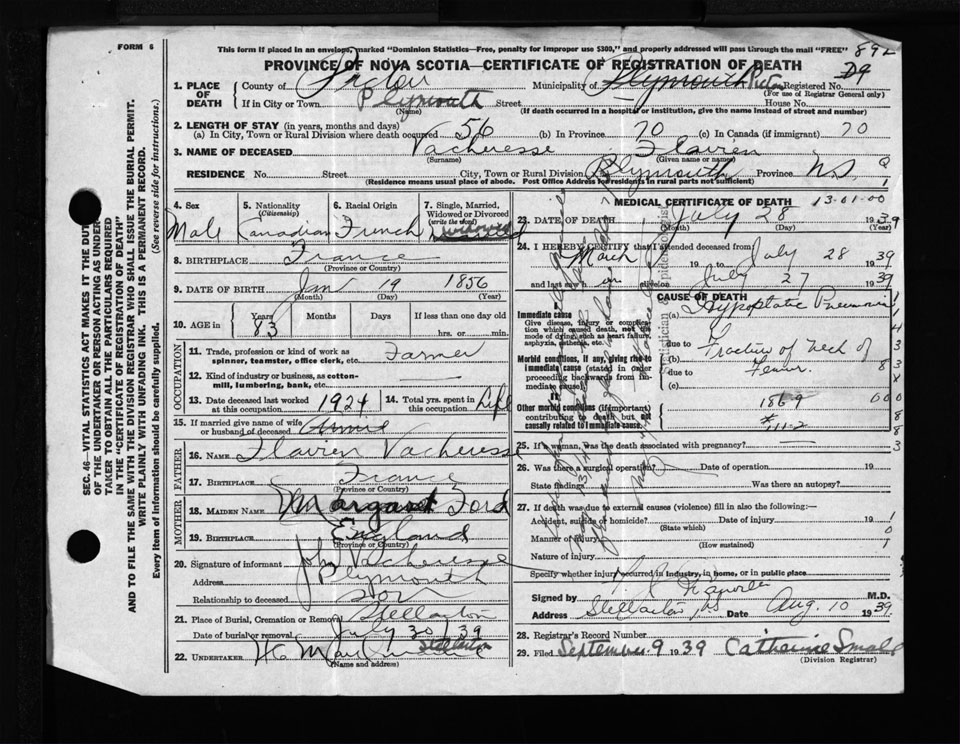 FORM 6
This form if placed in an envelope, marked "Dominion Statistics—Free, penalty for improper use $300," and properly addressed will pass through the mail "FREE" 892
PROVINCE OF NOVA SCOTIA—CERTIFICATE OF REGISTRATION OF DEATH
D9
1. PLACE OF DEATH
County of Pictou Municipality of Plymouth Pictou Registered No.
(For use of Registrar General only)
If in City or Town Plymouth Street House No.
(Name) (If death occurred in a hospital or institution, give the name instead of street and number)
2. LENGTH OF STAY (in years, months and days)
(a) In City, Town or Rural Division where death occurred 56 (b) In Province 70 (c) In Canada (if immigrant) 70
3. NAME OF DECEASED Vacheresse Flavien
(Surname) (Given name or names)
RESIDENCE No. Street City, Town or Rural Division Plymouth Province N.S.
(Residence means usual place of abode. Post Office Address for residents in rural parts not sufficient)
4. Sex
Male
5. Nationality
(Citizenship)
Canadian
6. Racial Origin
French
7. Single, Married, Widowed or Divorced
(write the word)
8. BIRTHPLACE France
(Province or Country)
9. DATE OF BIRTH Jan 19 1856
(Month) (Day) (Year)
10. AGE in
Years Months Days If less than one day old
83 hrs. or min.
OCCUPATION
11. Trade, profession or kind of work as spinner, teamster, office clerk, etc. Farmer
12. Kind of industry or business, as cotton-mill, lumbering, bank, etc.
13. Date deceased last worked at this occupation 1924
14. Total yrs. spent in this occupation Life
15. If married give name of wife or husband of deceased Annie
FATHER
16. NAME Flavien Vacheresse
17. BIRTHPLACE France
(Province or Country)
MOTHER
18. MAIDEN NAME Margaret Ford
19. BIRTHPLACE England
(Province or Country)
20. Signature of informant John Vacheresse
Address Plymouth
Relationship to deceased Son
21. Place of Burial, Cremation or Removal Stellarton
Date of burial or removal July 30 1939
22. UNDERTAKER Stellarton
(Name and address)
MEDICAL CERTIFICATE OF DEATH 13-01-00
23. DATE OF DEATH July 28 1939
(Month) (Day) (Year)
24. I HEREBY CERTIFY that I attended deceased from
March 19 to July 28 1939
and last saw h im alive on July 27 1939
CAUSE OF DEATH
Immediate cause
Give disease, injury or complication which caused death, not the mode of dying, such as heart failure, asphyxia, asthenia, etc.
(a) Hypostatic Pneumonia
due to
Morbid conditions, if any, giving rise to immediate cause (stated in order proceeding backwards from immediate cause)
(b) Fracture of Neck of
due to Femur
(c)
II
Other morbid conditions (if important) contributing to death but not causally related to immediate cause.
1869
# 111-2
25. If a woman, was the death associated with pregnancy?
26. Was there a surgical operation? Date of operation 19
State findings Was there an autopsy?
27. If death was due to external causes (violence) fill in also the following:—
Accident, suicide or homicide? Date of injury 19
(State which)
Manner of injury
(How sustained)
Nature of injury
Specify whether injury occurred in industry, in home, or in public place
Signed by M.D.
Address Stellarton, NS Date Aug. 10 1939
28. Registrar's Record Number
29. Filed September 9 1939 Catherine Small
(Division Registrar)
SEC. 46—VITAL STATISTICS ACT MAKES IT THE DUTY
OF THE UNDERTAKER OR PERSON ACTING AS UNDER-
TAKER TO OBTAIN ALL THE PARTICULARS REQUIRED
IN THE "CERTIFICATE OF REGISTRATION OF DEATH"
AND TO FILE THE SAME WITH THE DIVISION REGISTRAR WHO SHALL ISSUE THE BURIAL PERMIT.
WRITE PLAINLY WITH UNFADING INK. THIS IS A PERMANENT RECORD.
Every item of Information should be carefully supplied. (See reverse side for instructions.)